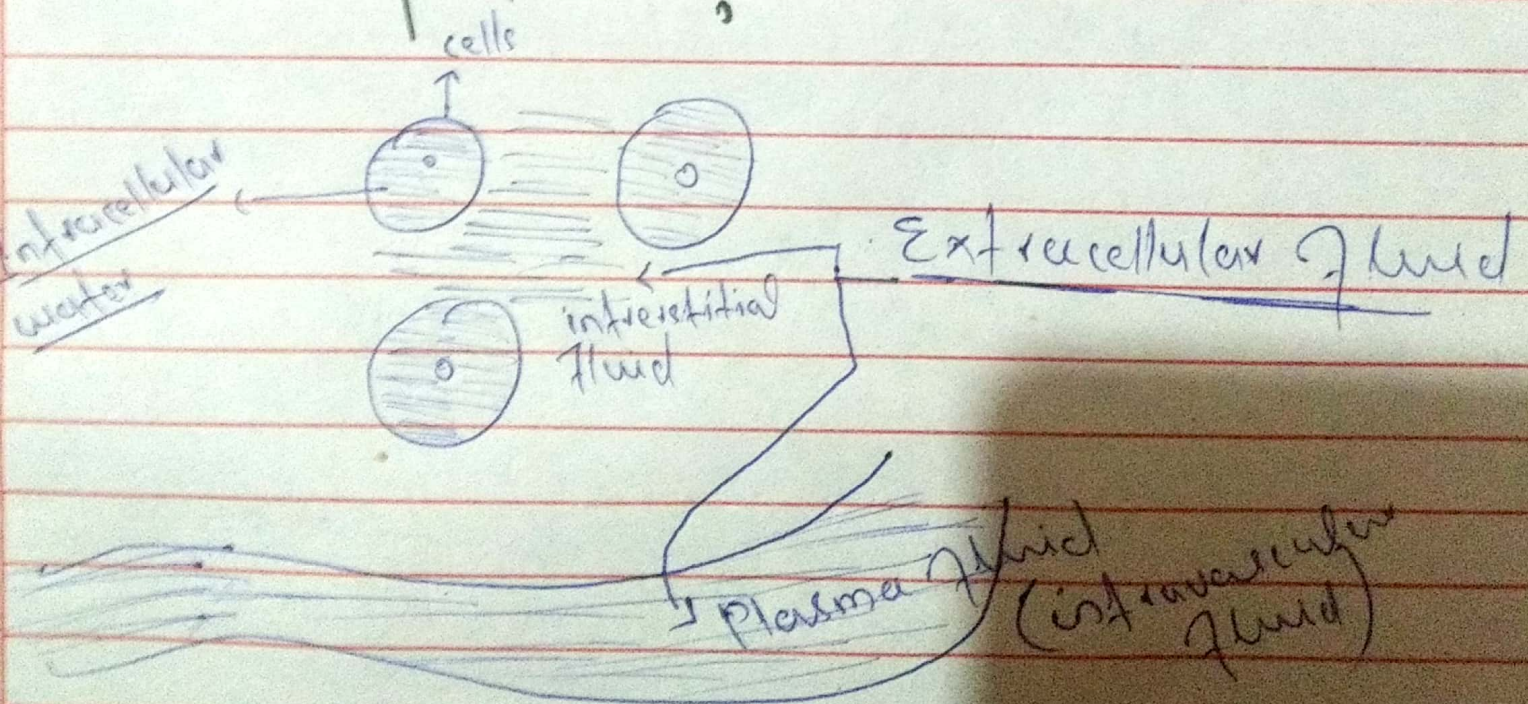 cells
intracellular
water
Extracellular fluid
interstitial
fluid
Plasma fluid
(intravascular
fluid)